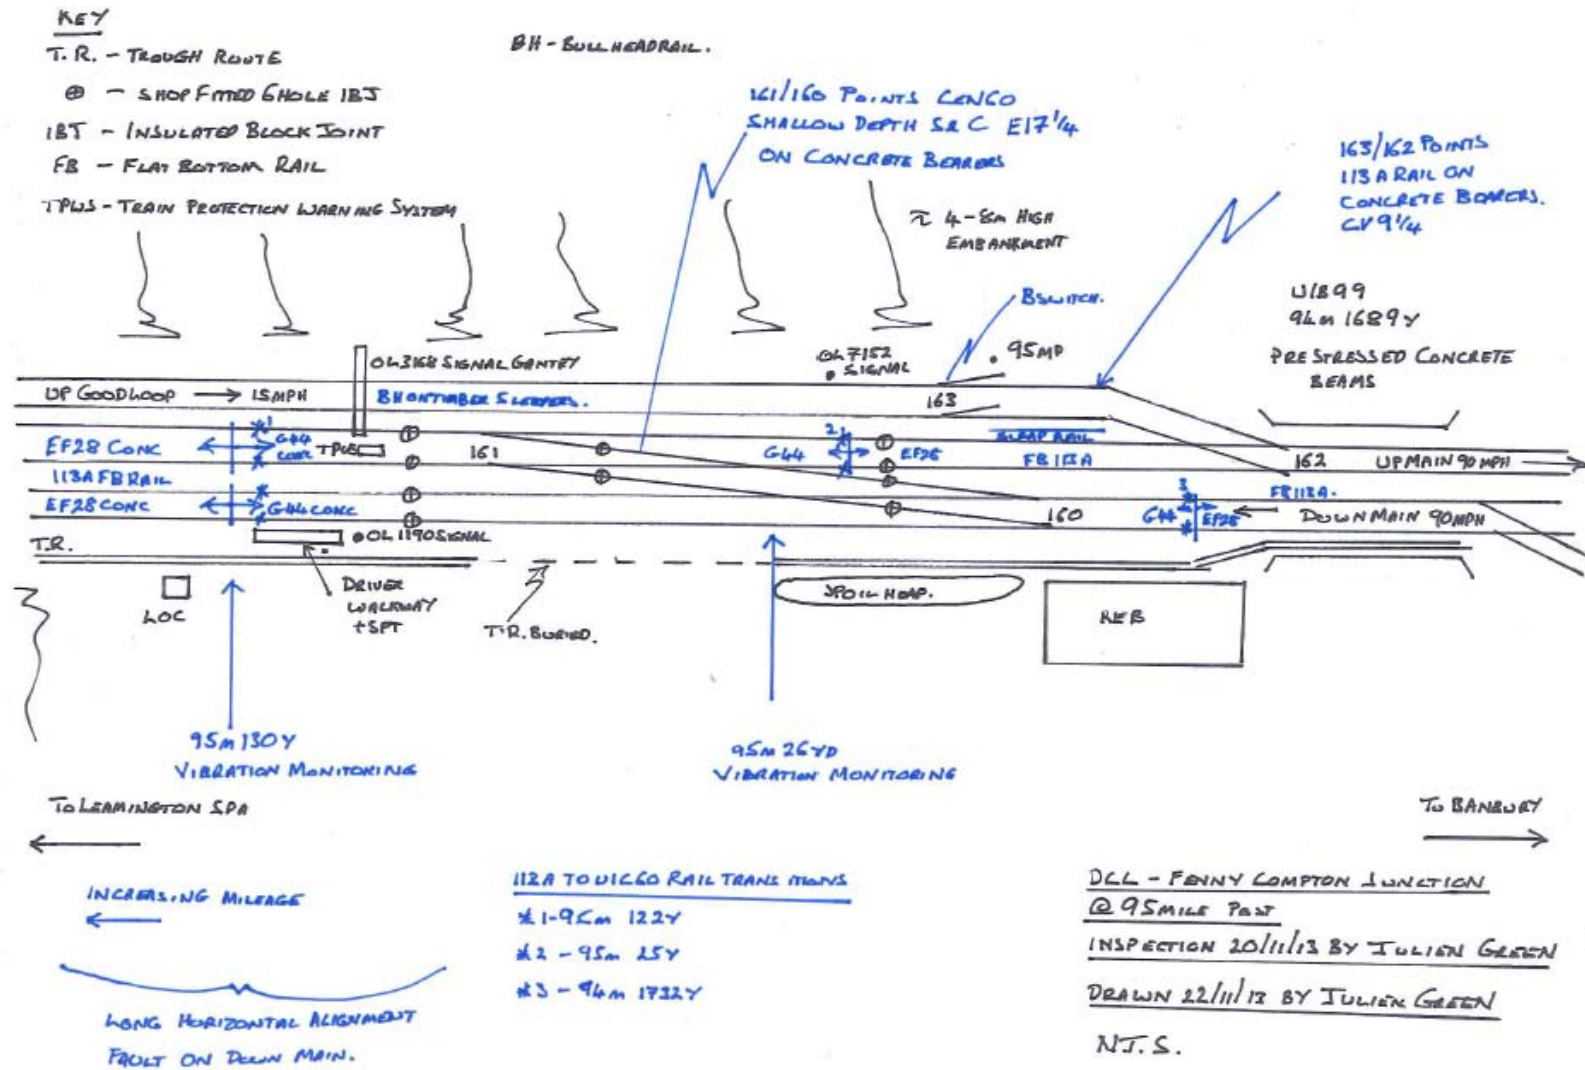 KEY
T.R. - TROUGH ROUTE
⊕ - SHOP FITTED 6HOLE IBJ
IBJ - INSULATED BLOCK JOINT
FB - FLAT BOTTOM RAIL
TPWS - TRAIN PROTECTION WARNING SYSTEM
BH - BULLHEAD RAIL.
161/160 POINTS CEN60
SHALLOW DEPTH S&C E17 1/4
ON CONCRETE BEARERS
163/162 POINTS
113A RAIL ON
CONCRETE BEARERS.
CV 9 1/4
4-8m HIGH
EMBANKMENT
B SWITCH.
U/B 99
94m 1689y
PRESTRESSED CONCRETE
BEAMS
OL3168 SIGNAL GANTRY
OL7152
SIGNAL
95MP
UP GOOD LOOP → 15MPH
BH ON TIMBER SLEEPERS.
163
EF28 CONC
*1
G44
CONC
TPWS
161
2
G44
EF28
FB 113A
162
UP MAIN 90 MPH
113A FB RAIL
EF28 CONC
G44 CONC
3
FB 113A.
160
G44
EF28
DOWN MAIN 90MPH
T.R.
OL1190 SIGNAL
LOC
DRIVER
WALKWAY
+ SPT
T.R. BURIED.
SPOIL HEAP.
REB
95m 130Y
VIBRATION MONITORING
95m 26YD
VIBRATION MONITORING
TO LEAMINGTON SPA
TO BANBURY
INCREASING MILEAGE
LONG HORIZONTAL ALIGNMENT
FAULT ON DOWN MAIN.
113A TO UIC60 RAIL TRANSITIONS
*1 - 95m 122Y
*2 - 95m 25Y
*3 - 94m 1732Y
DCL - FENNY COMPTON JUNCTION
@ 95MILE POST
INSPECTION 20/11/13 BY JULIEN GREEN
DRAWN 22/11/13 BY JULIEN GREEN
N.T.S.